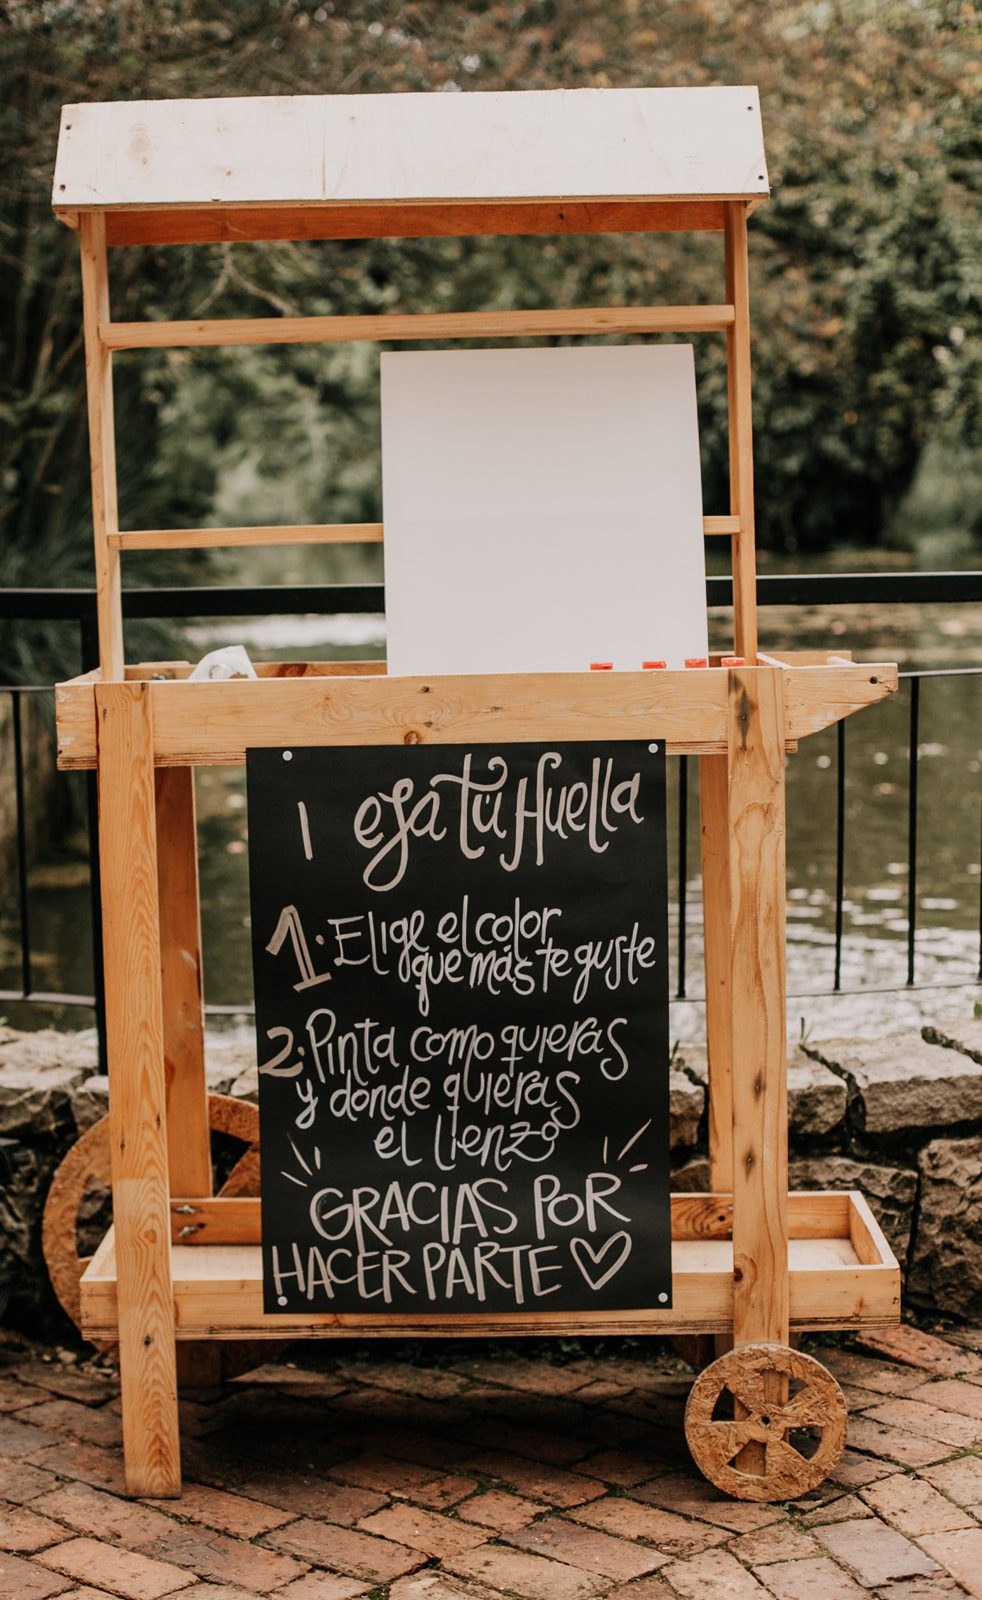 Deja tu Huella
1. Elige el color
que más te guste
2. Pinta como quieras
y donde quieras
el lienzo
GRACIAS POR
HACER PARTE ♡